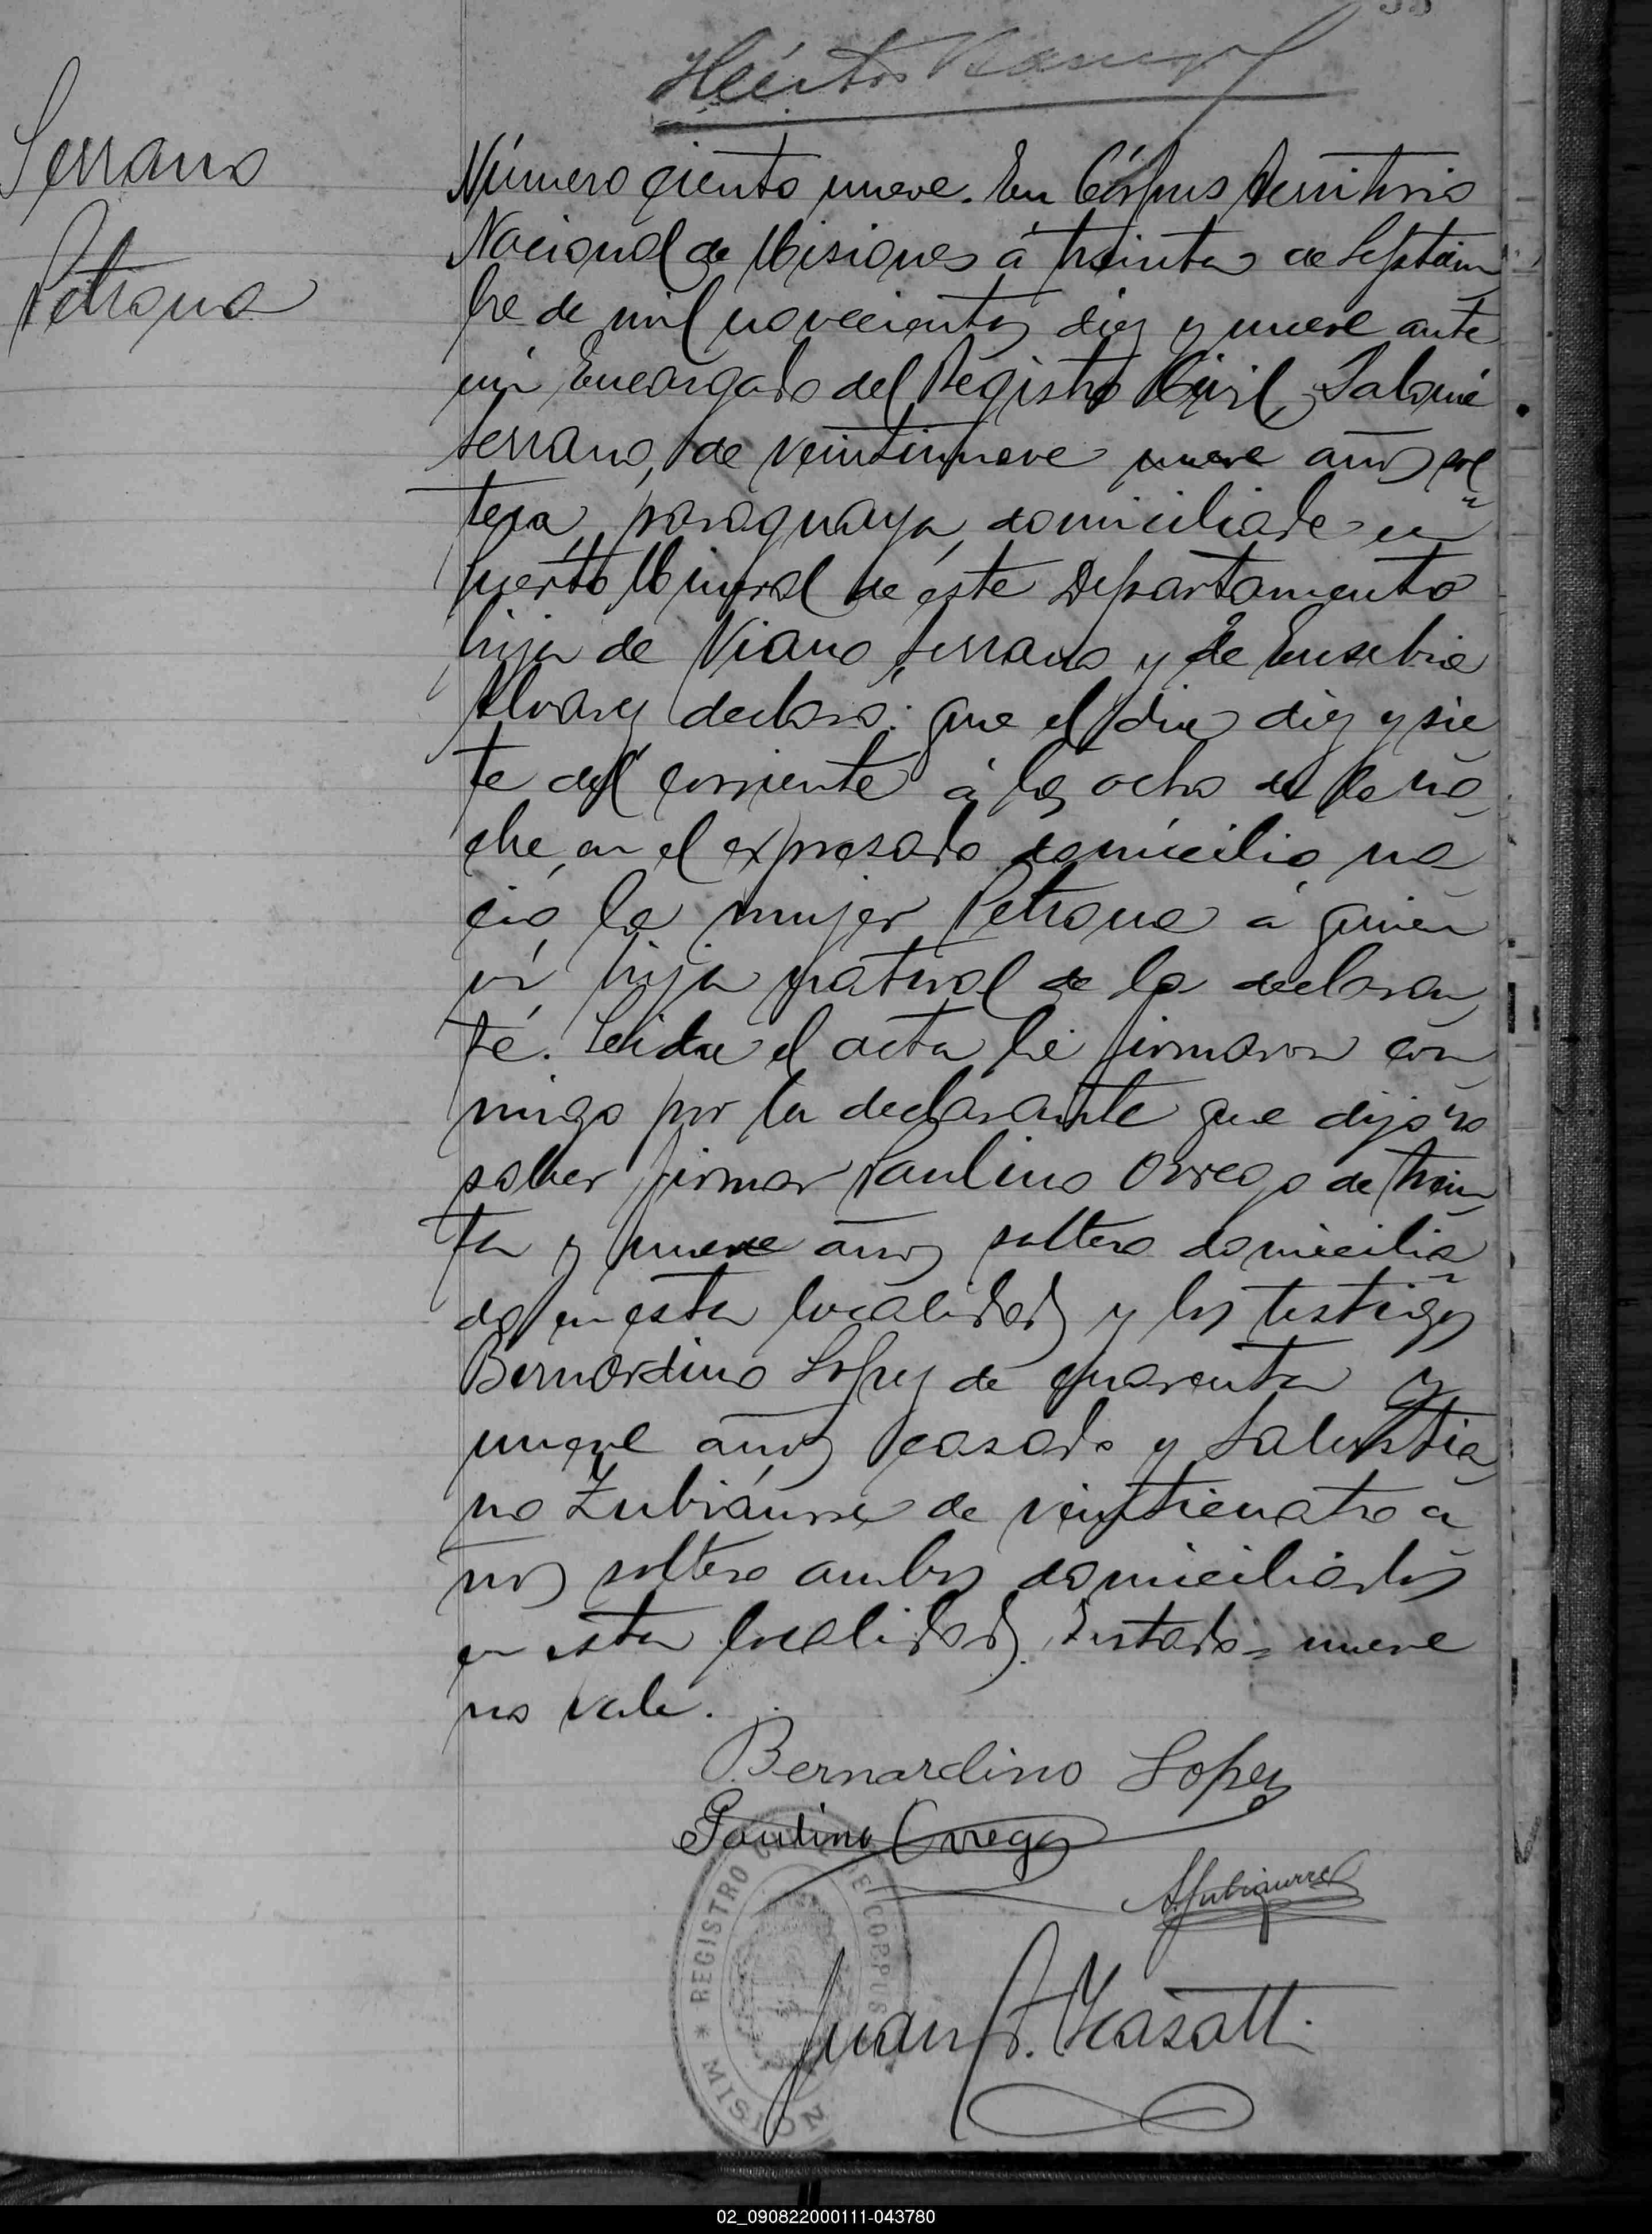 Serrano
Petrona
Número ciento nueve. En Córpus Territorio
Nacional de Misiones á treinta de Septiem
bre de mil novecientos diez y nueve ante
mi Encargado del Registro Civil, Salomé
Serrano, de veintinueve nueve años sol
tera, paraguaya, domiciliada en
puerto Mineral de éste Departamento
hija de Serrano y de Eusebia
Alvarez declaró: que el dia diez y sie
te del corriente á las ocho de la no
che, en el expresado domicilio na
ció la mujer Petrona á quien
ví, hija natural de la declaran
te. Leida el acta la firmaron con
migo por la declarante que dijo no
saber firmar Paulino Orrego de trein
ta y nueve años soltero domicilia
do en esta localidad y los testigos
Bernardino Lopez de cuarenta y
nueve años casado y Salustia
no Zubiaurre de veinticuatro a
ños soltero ambos domiciliados
en esta localidad. Testado = nueve
no vale.
Bernardino Lopez
Paulino Orrego
S. Zubiaurre
Juan
REGISTRO CIVIL DE CORPUS * MISION
02_090822000111-043780